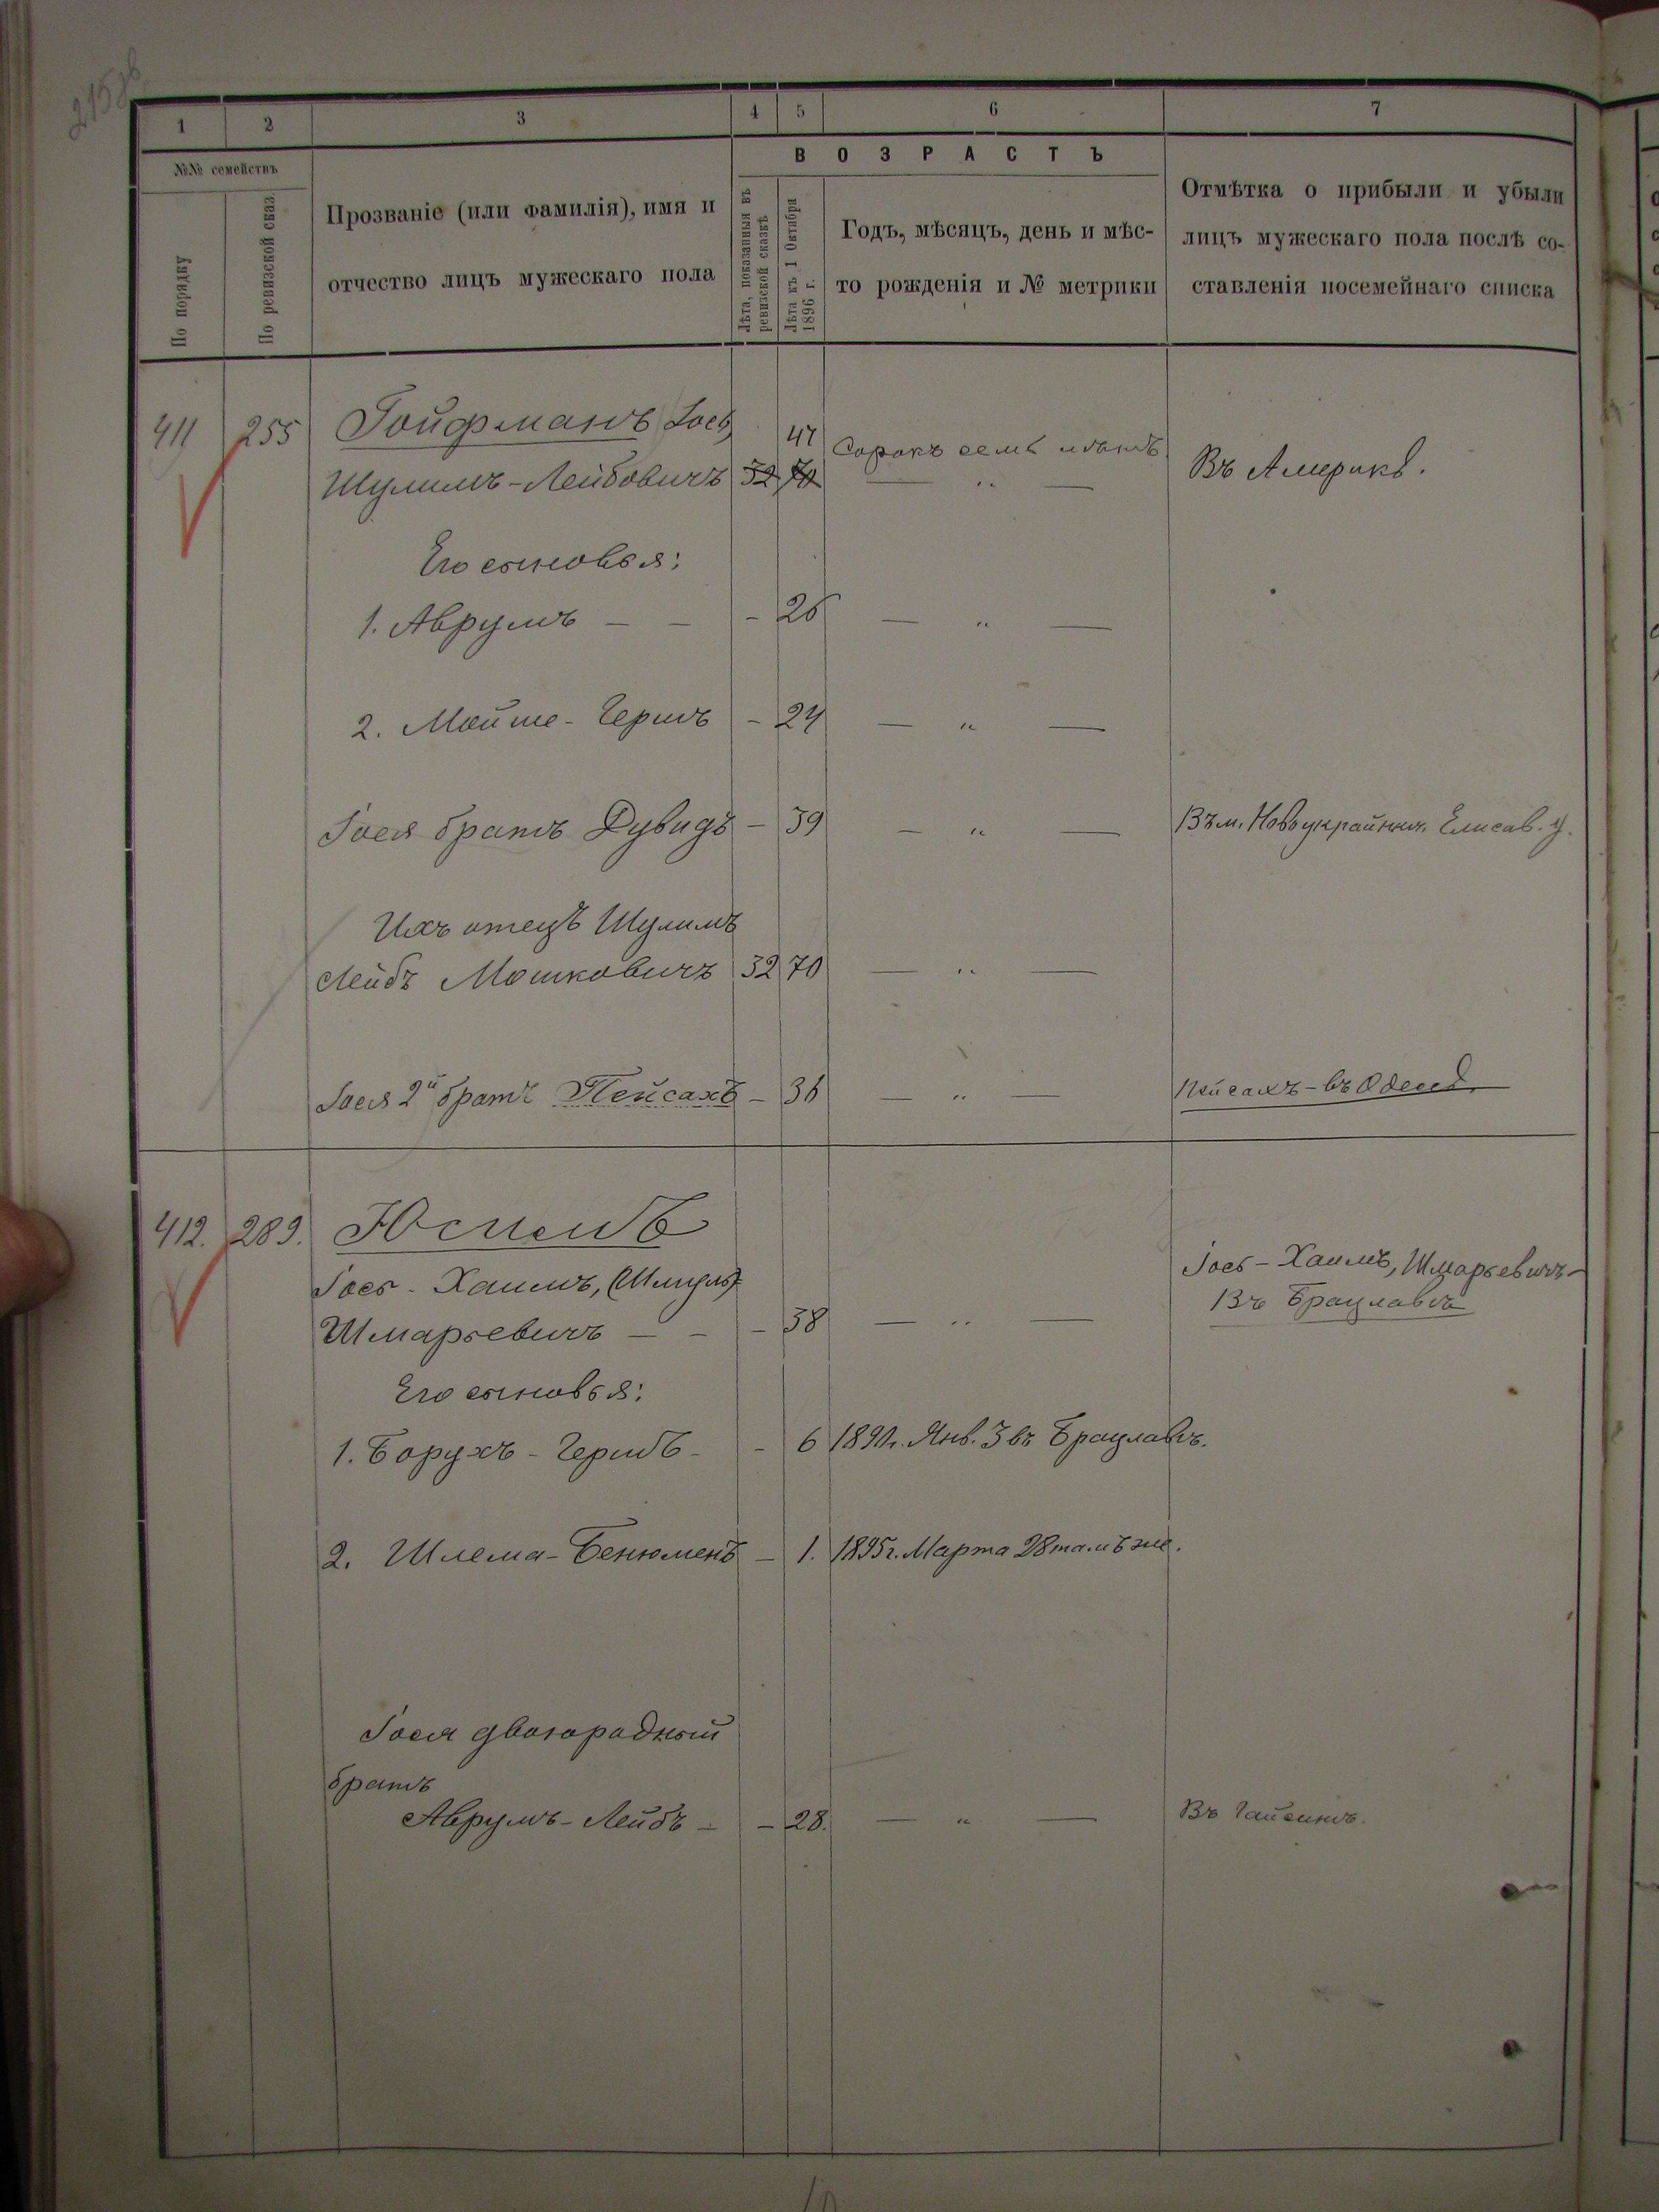 215об
1 2 3 4 5 6 7
№№ семействъ
По порядку
По ревизской сказ.
Прозваніе (или фамилія), имя и
отчество лицъ мужескаго пола
ВОЗРАСТЪ
Лѣта, показанныя въ
ревизской сказкѣ
Лѣта къ 1 Октября
1896 г.
Годъ, мѣсяцъ, день и мѣс-
то рожденія и № метрики
Отмѣтка о прибыли и убыли
лицъ мужескаго пола послѣ со-
ставленія посемейнаго списка
411 255 Гойфманъ Іось, 47 Сорокъ семь лѣтъ
Шулимъ-Лейбовичъ 32 70 — „ — Въ Америкѣ.
Его сыновья:
1. Аврумъ — — - 26 — „ —
2. Мойше-Гершъ - 24 — „ —
Іося братъ Дувидъ - 39 — „ — Въ м. Новоукраинкѣ Елисав. у.
Ихъ отецъ Шулимъ
Лейбъ Мошковичъ 32 70 — „ —
Іося 2й братъ Пейсахъ - 36 — „ — Пейсахъ - въ Одессѣ.
412. 289. Юсимъ
Іось - Хаимъ, (Шмуль) Іось - Хаимъ, Шмарьевичъ -
Шмарьевичъ — - - 38 — „ — Въ Брацлавѣ
Его сыновья:
1. Борухъ - Гершъ - - 6 1890г. Янв. 3 въ Брацлавѣ.
2. Шлема-Бенюменъ - 1. 1895г. Марта 28 тамъ же.
Іося двоюродный
братъ
Аврумъ-Лейбъ - - 28. — „ — Въ Гайсинѣ.